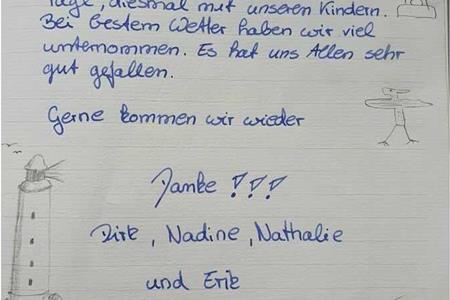 Tage, diesmal mit unseren Kindern.
Bei bestem Wetter haben wir viel
unternommen. Es hat uns Allen sehr
gut gefallen.
Gerne kommen wir wieder
Danke !!!
Dirk, Nadine, Nathalie
und Erik